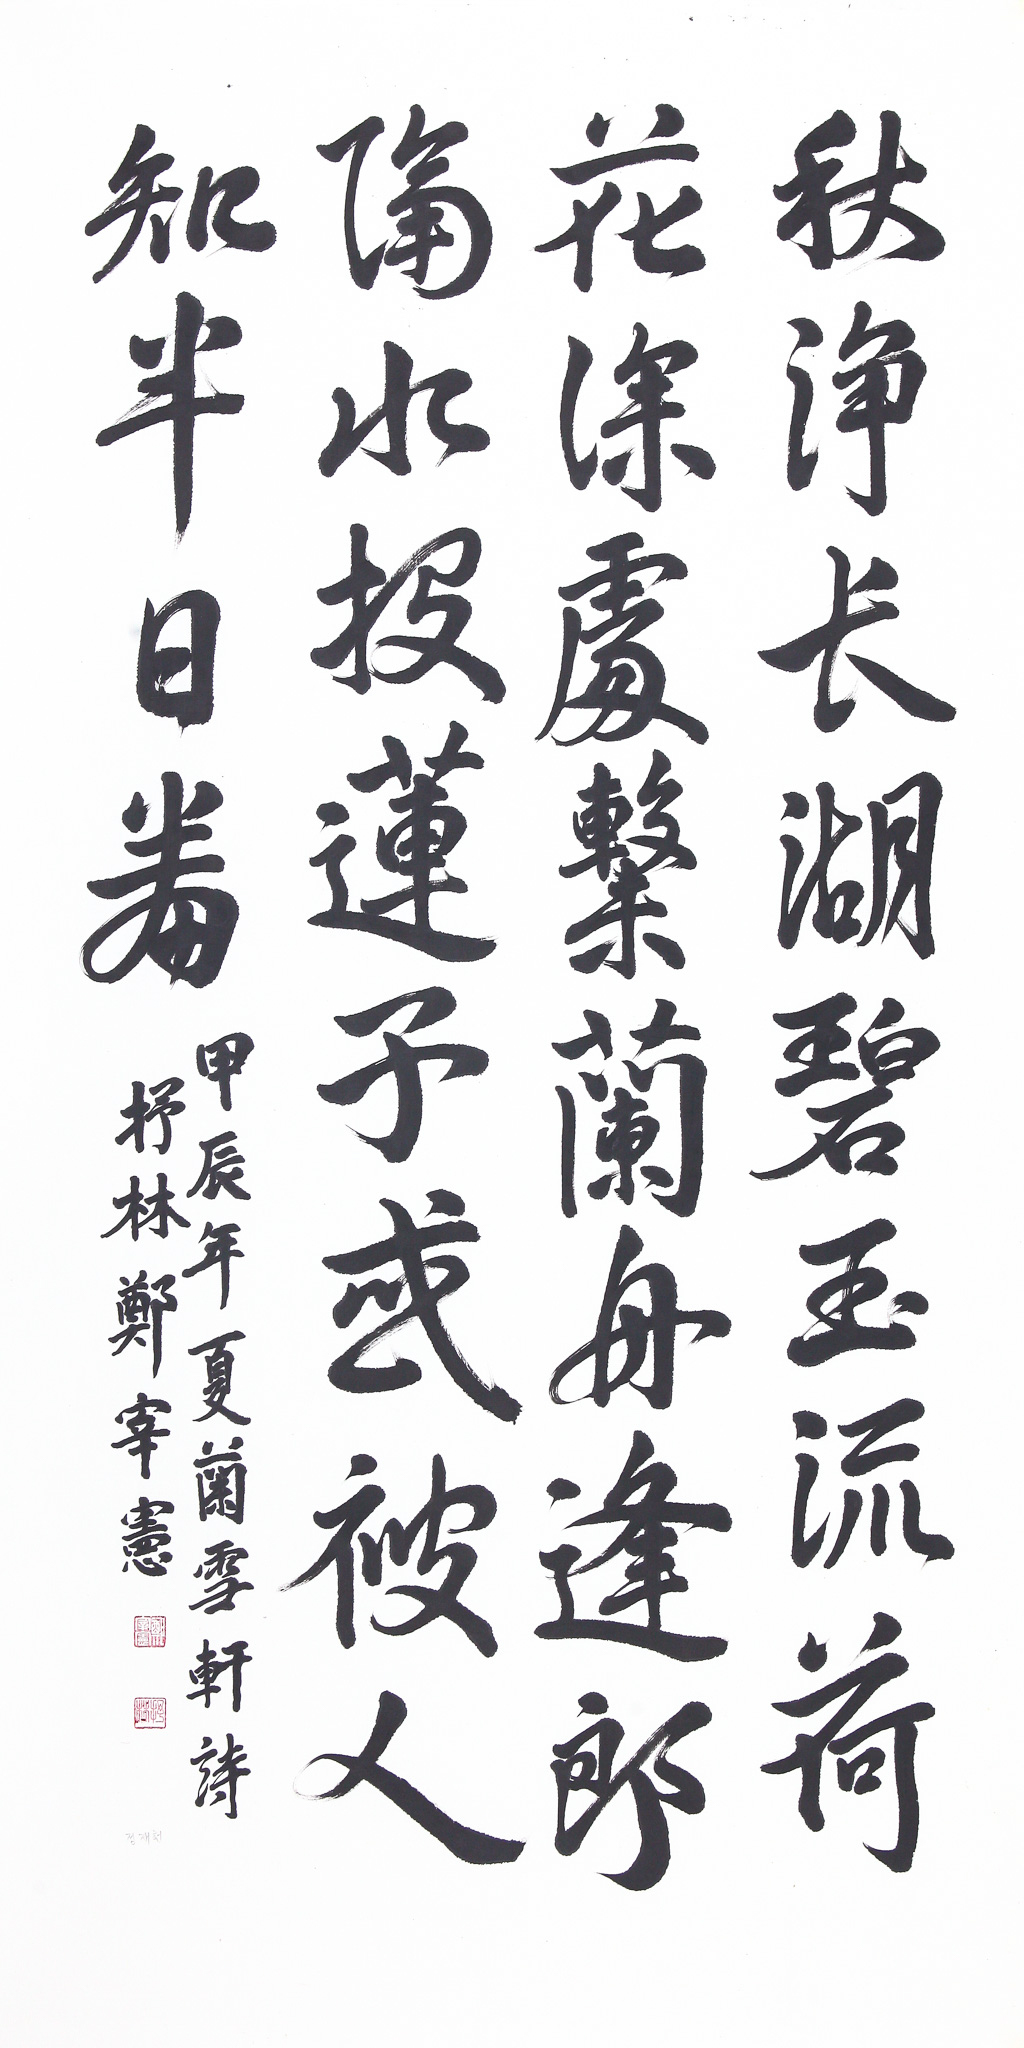 秋淨长湖碧玉流荷
花深處繫蘭舟逢郎
隔水投蓮子或被人
知半日羞
甲辰年夏蘭雪軒詩
抒林鄭宰憲
정재헌